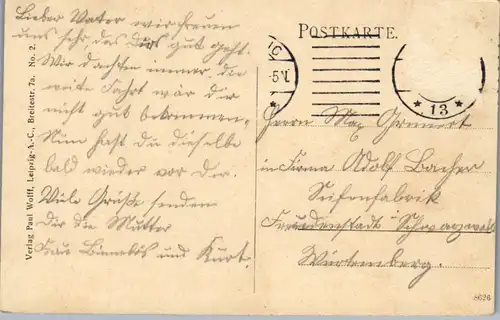 Lieber Vater wir freuen
uns sehr, das Dirs gut geht.
Wir dachten immer, die
weite Fahrt wär dir
nicht gut bekommen.
Nun hast du dieselbe
bald wieder vor Dir.
Viele Grüße senden
Dir die Mutter
Frau und Kurt.
Verlag Paul Wolff, Leipzig-A.-C., Breitestr. 7a. No. 2.
POSTKARTE.
IG
-5N
* 13 *
Herrn Max
in Firma Adolf Bacher
Seifenfabrik
Freudenstadt Schwarzwald
Würtemberg.
8626